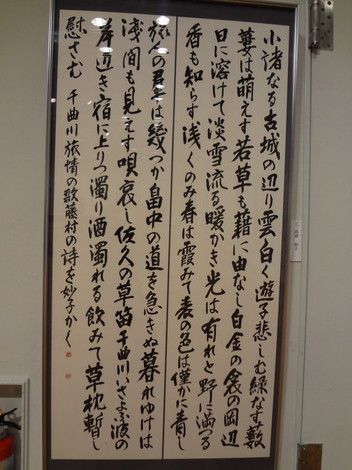 小諸なる古城の辺り雲白く遊子悲しむ緑なす蘩
蔞は萌えす若草も藉に由なし白金の衾の岡辺
日に溶けて淡雪流る暖かき光は有れと野に満つる
香も知らす浅くのみ春は霞みて麦の色は僅かに青し
旅人の羣は幾つか畠中の道を急きぬ暮れゆけは
浅間も見えす唄哀し佐久の草笛千曲川いさよふ波の
岸近き宿に上りつ濁り酒濁れる飲みて草枕暫し
慰さむ 千曲川旅情の歌藤村の詩を妙子かく